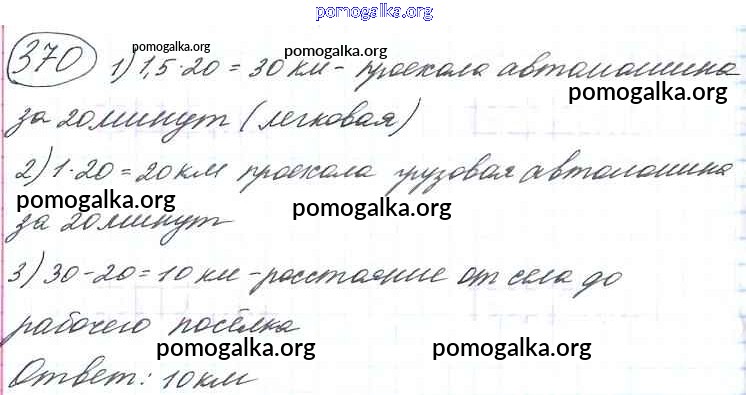 pomogalka.org
370 1) 1,5·20 = 30 км - проехала автомашина
pomogalka.org pomogalka.org
pomogalka.org
за 20 минут (легковая)
2) 1·20 = 20 км проехала грузовая автомашина
pomogalka.org pomogalka.org
за 20 минут
3) 30-20 = 10 км - расстояние от села до
рабочего посёлка
pomogalka.org pomogalka.org
Ответ: 10 км